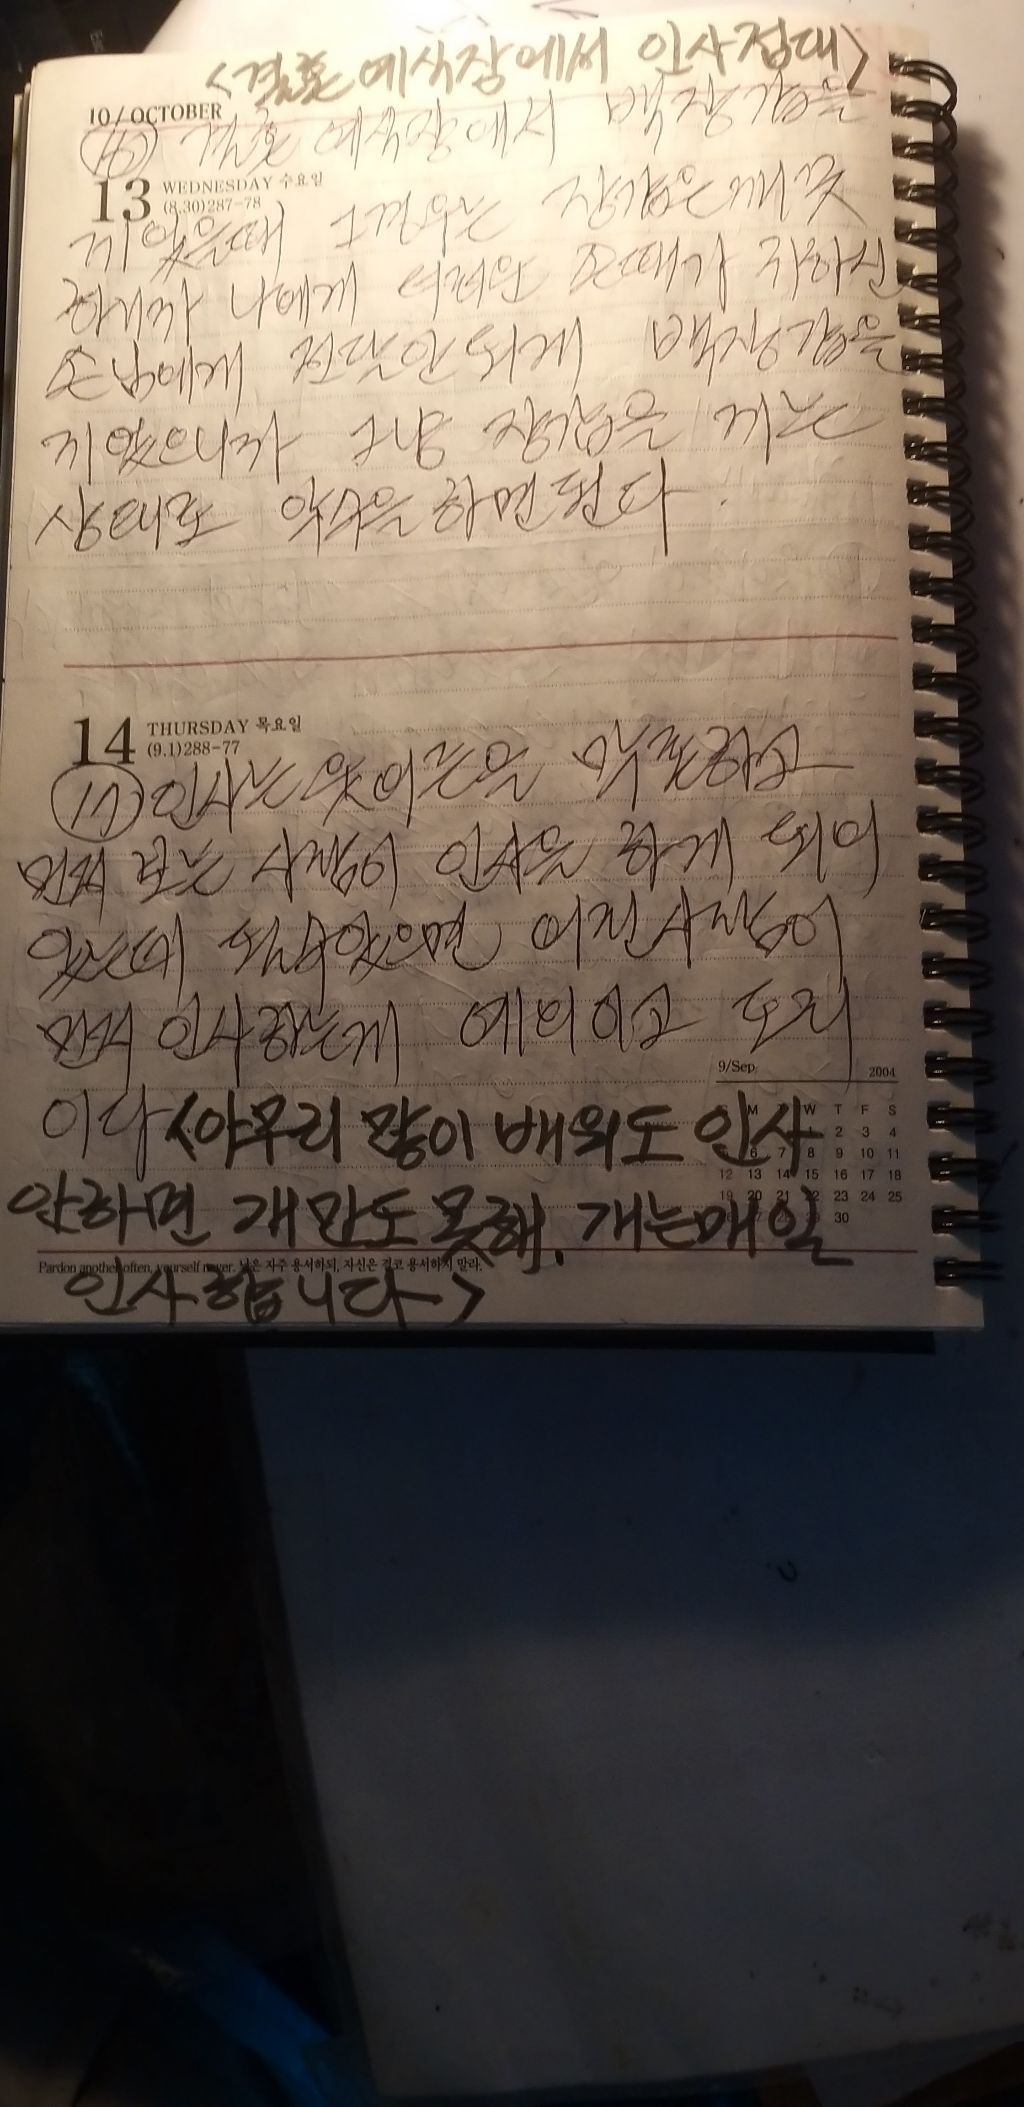 <결혼 예식장에서 인사접대>
10/OCTOBER
⑯ 결혼 예식장에서 백장갑을
13 WEDNESDAY 수요일
(8.30)287-78
끼었을때 그경우는 장갑은깨끗
하니까 나에게 더러운 손때가 귀하신
손님에게 전달안되게 백장갑을
끼었으니까 그냥 장갑을 끼는
상태로 악수을하면된다.
14 THURSDAY 목요일
(9.1)288-77
⑰ 인사는 웃어른을 막론하고
먼저 보는 사람이 인사을 하게 되어
있는데 되있으면 어진사람이
먼저 인사하는게 예의이고 도리
9/Sep 2004
이다 <아무리 많이 배워도 인사
M W T F S
2 3 4
6 7 8 9 10 11
12 13 14 15 16 17 18
19 20 21 22 23 24 25
30
안하면 개만도못해. 개는매일
Pardon another often, yourself never. 남은 자주 용서하되, 자신은 결코 용서하지 말라.
인사합니다>